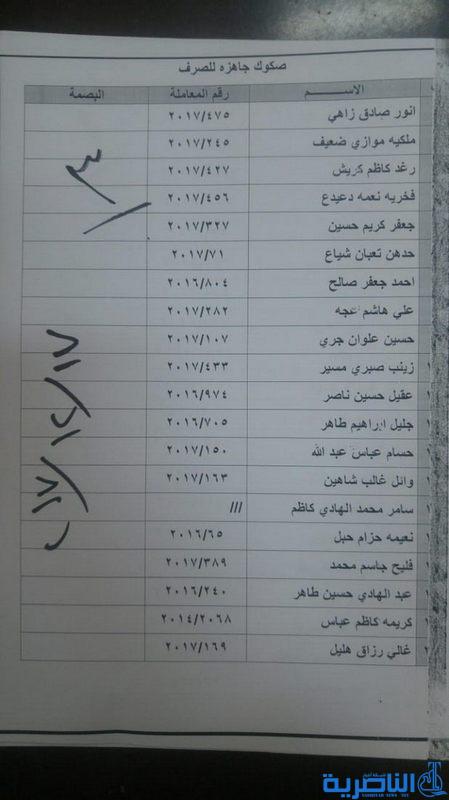 صكوك جاهزه للصرف
الاســـــم رقم المعاملة البصمة
انور صادق زاهي ٢٠١٧/٤٧٥
ملكيه موازي ضعيف ٢٠١٧/٢٤٥
رغد كاظم كريش ٢٠١٧/٤٢٧
فخريه نعمه دعيدع ٢٠١٧/٤٥٦
جعفر كريم حسين ٢٠١٧/٣٢٧
حدهن تعبان شياع ٢٠١٧/٧١
احمد جعفر صالح ٢٠١٦/٨٠٤
علي هاشم عجه ٢٠١٧/٢٨٢
حسين علوان جري ٢٠١٧/١٠٧
زينب صبري مسير ٢٠١٧/٤٣٣
عقيل حسين ناصر ٢٠١٦/٩٧٤
جليل ابراهيم طاهر ٢٠١٦/٧٠٥
حسام عباس عبد الله ٢٠١٧/١٥٠
وائل غالب شاهين ٢٠١٧/١٦٣
سامر محمد الهادي كاظم ///
نعيمه حزام حبل ٢٠١٦/٦٥
فليح جاسم محمد ٢٠١٧/٣٨٩
عبد الهادي حسين طاهر ٢٠١٦/٢٤٠
كريمه كاظم عباس ٢٠١٤/٢٠٦٨
غالي رزاق هليل ٢٠١٧/١٦٩
الناصرية